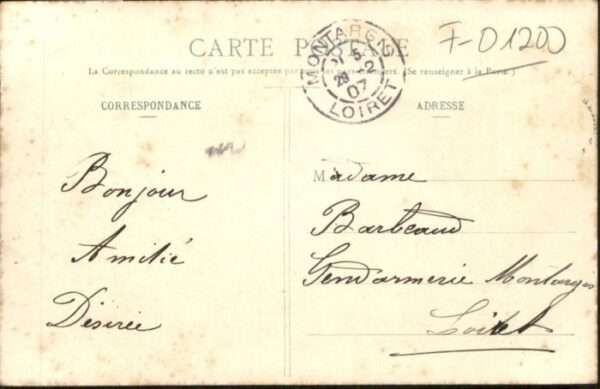 CARTE POSTALE
La Correspondance au recto n'est pas acceptée par
(Se renseigner à la Poste.)
CORRESPONDANCE
ADRESSE
MONTARGIS
28 2
07
LOIRET
F-01200
Bonjour
Amitié
Désirée
Madame
Barbeaud
Gendarmerie Montargis
Loiret